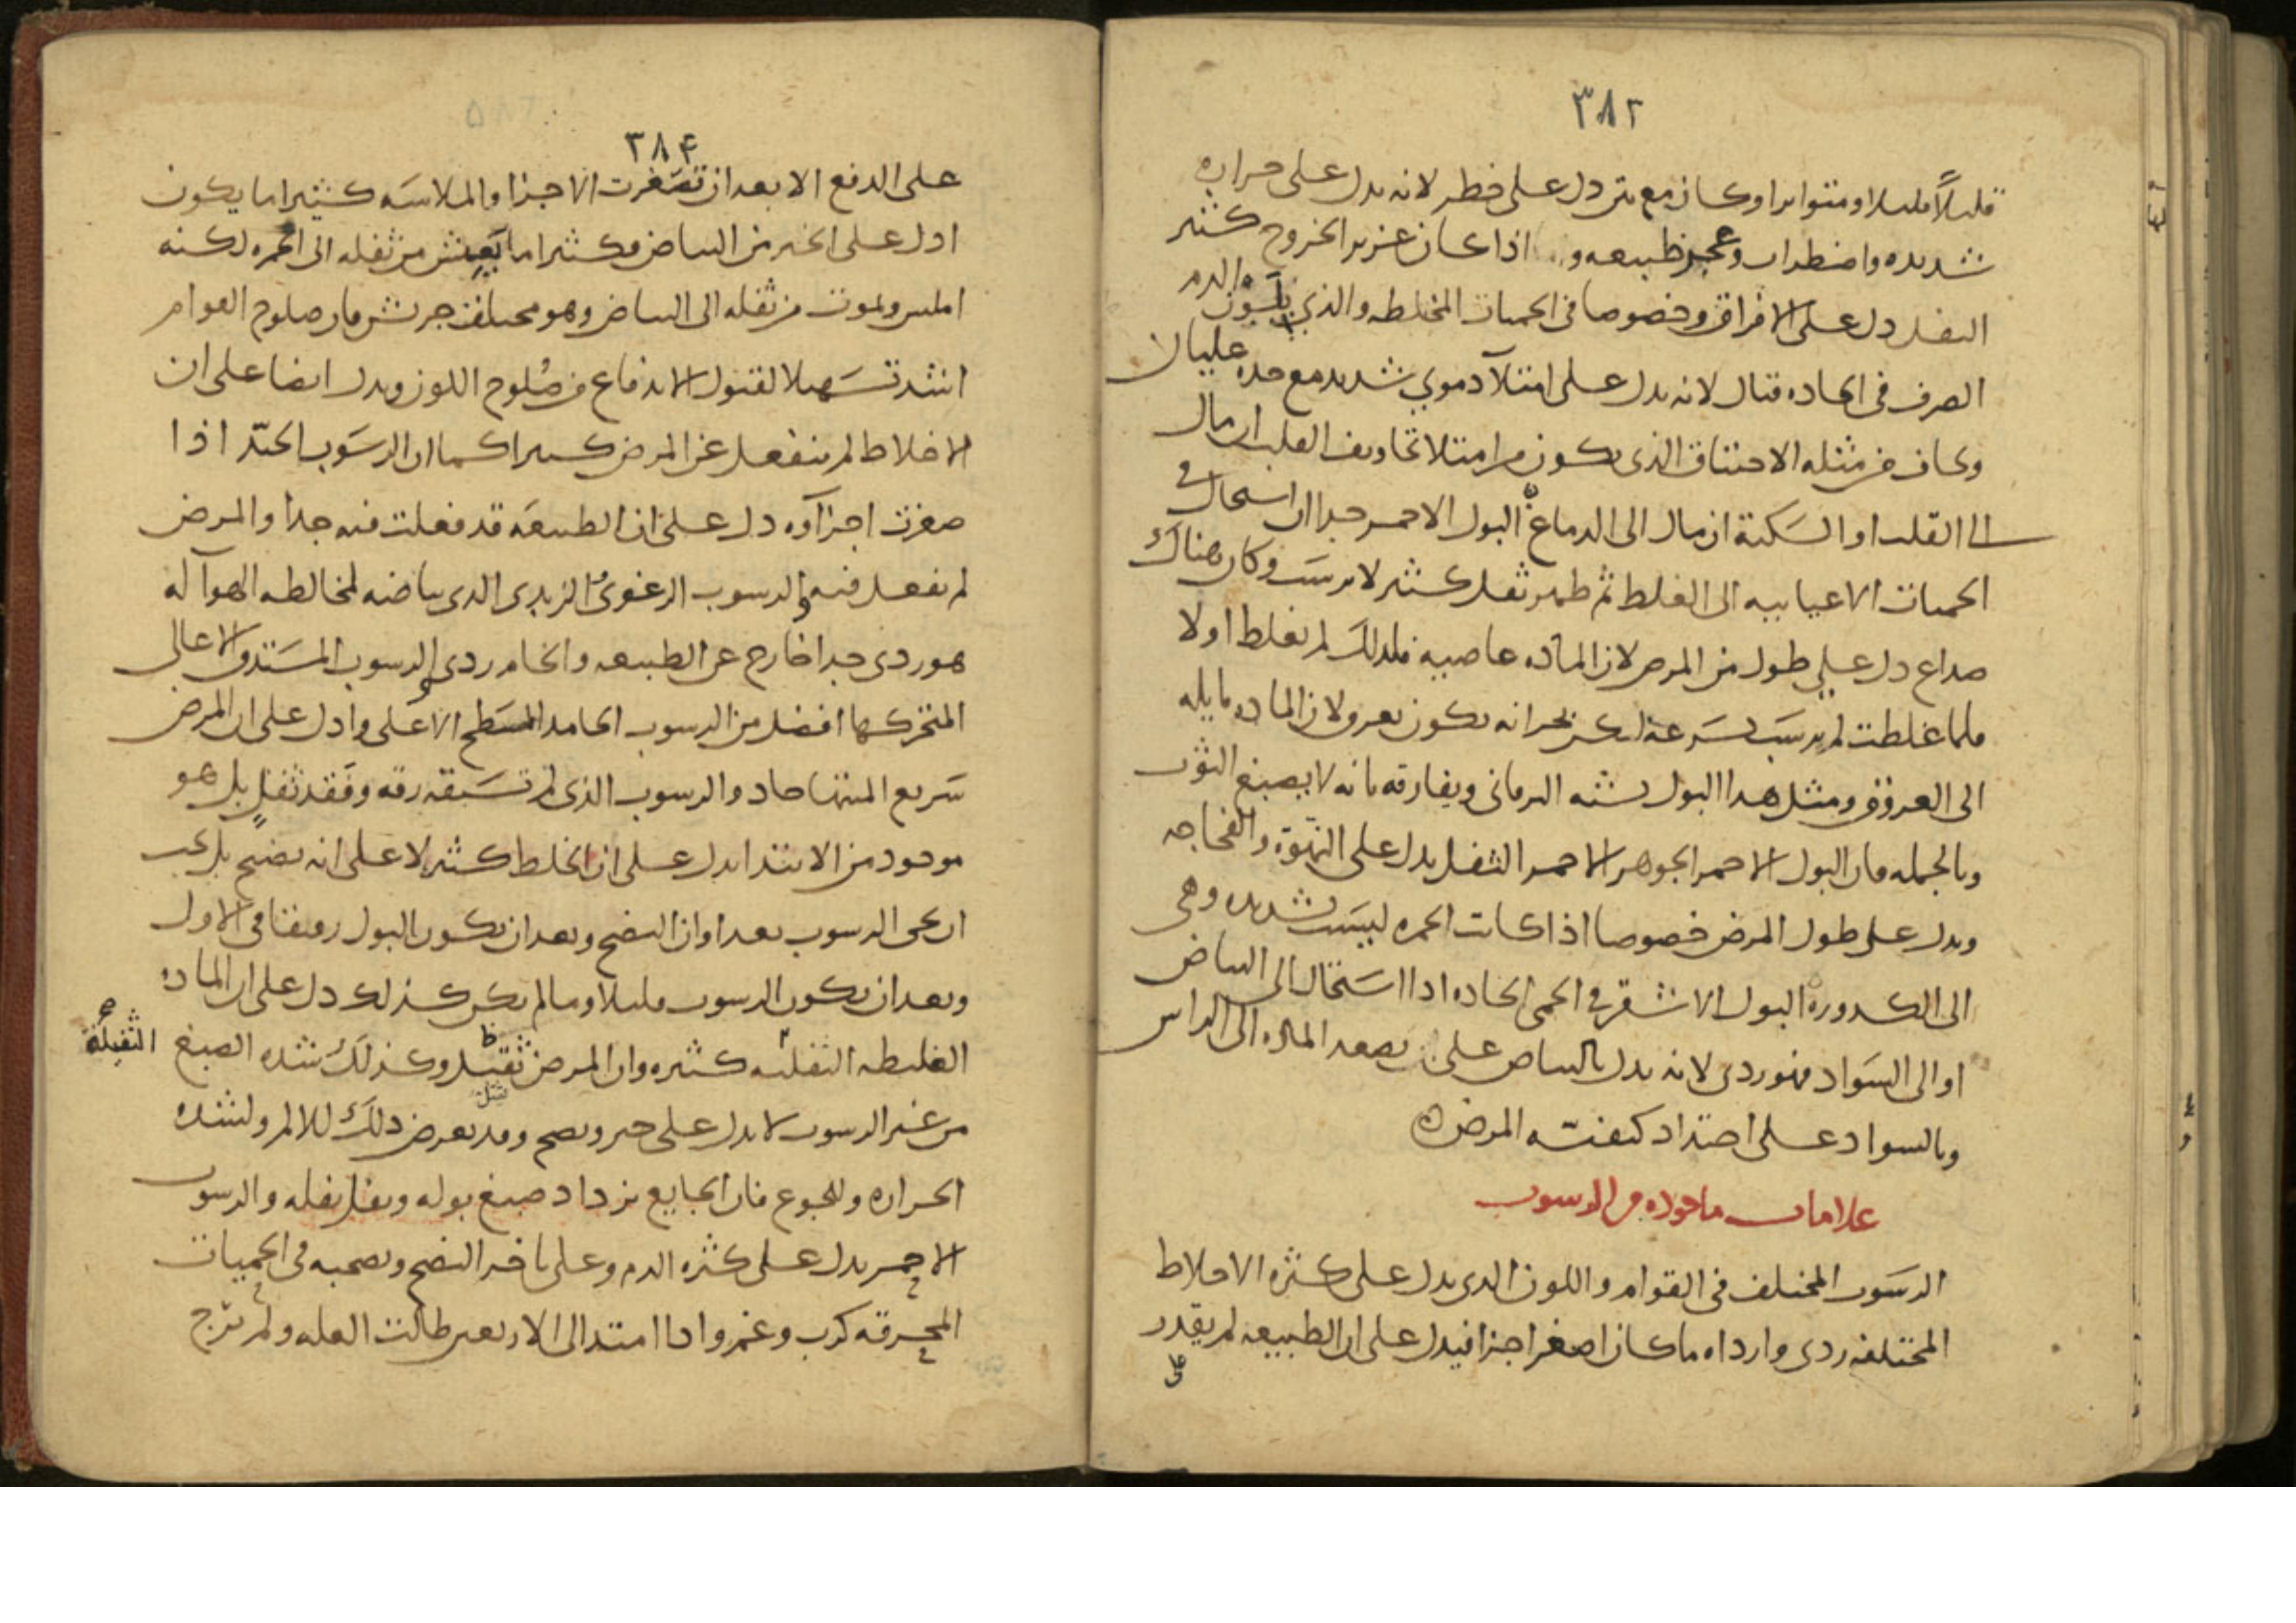 ٣٨٢
قليلاً قليلا او متواترا وكان مع نتن دل على خطر لانه يدل على حراره
شديده واضطراب وعجز طبيعه و اذا كان غزير الخروج كثير
الثفل دل على الافراق وخصوصا في الحميات المختلطه والذي يبول الدم
الصرف في الحاده قتال لانه يدل على امتلآ دموي شديد مع حده غليان
ويخاف من مثله الاختناق الذي يكون من امتلا تجاويف القلب ان مال
الى القلب او السكتة ان مال الى الدماغ ه البول الاحمر جدا ان استحال في
الحميات الاعياييه الى الغلظ ثم ظهر ثفل كثير لا يرسب وكان هناك
صداع دل على طول من المرض لان الماده عاصيه فلذلك لم تغلظ اولا
فلما غلظت لم يرسب بسرعة لكن بحرانه يكون بعرق لان الماده مايله
الى العروق ومثل هذا البول يشبه اليرقاني ويفارقه بانه لا يصبغ الثوب
وبالجمله فان البول الاحمر الجوهر الاحمر الثفل يدل على النهوة والفجاجه
ويدل على طول المرض خصوصا اذا كانت الحمره ليست شديده وهي
الى الكدوره ه البول الاشقر في الحمى الحاده اذا استحال الى البياض
او الى السواد فهو ردى لانه يدل بالبياض على تصعد الماده الى الراس
وبالسواد على احتداد كيفيته المرض ه
علامات ماخوذه من الرسوب
الرسوب المختلف في القوام واللون الذى يدل على كثرة الاخلاط
المختلفه ردى وارداه ما كان اصغر اجزا فيدل على ان الطبيعه لم يقدر
على
٣٨۴
على الدفع الا بعد ان تصغرت الاجزا والملاسه كثيرا ما يكون
ادل على الخير من البياض فكثيرا ما يعيش من ثفله الى الحمره لكنه
املس ويموت من ثفله الى البياض وهو مختلف جريش فان صلوح القوام
اشد تسهيلا لقبول الاندفاع من صلوح اللون ويدل ايضا على ان
الاخلاط لم ينفعل عن المرض كثيرا كما ان الرسوب الجيد اذا
صغرت اجزآوه دل على ان الطبيعه قد فعلت فيه جدا والمرض
لم يفعل فيه والرسوب الرغوى الزبدى الذى بياضه لمخالطه الهوآ له
هو ردى جدا خارج عن الطبيعه والخام ردى والرسوب المستدق الاعالى
المتحركها افضل من الرسوب الجامد المسطح الاعلى وادل على ان المرض
سريع المنتها حاد والرسوب الذى لم تسبقه رقه وفقد ثفل بل هو
موجود من الابتدا يدل على ان الخلط كثير لا على انه نضيج بل يجب
ان يجى الرسوب بعد اوان النضج وبعد ان يكون البول رقيقا في الاول
وبعد ان يكون الرسوب قليلا وما لم يكن كذلك دل على ان الماده
الغليظه الثقليه كثيره وان المرض ثقيل وكذلك شده الصبغ
الثقيلة
من غير الرسوب لا يدل على خير ونضج وقد يعرض ذلك للالم ولشده
الحراره وللجوع فان الجايع يزداد صبغ بوله ويقل ثفله والرسوب
الاحمر يدل على كثره الدم وعلى تاخر النضج ويصحبه في الحميات
المحرقه كرب وغم واذا امتد الى الاربعين طالت العله ولم يرج